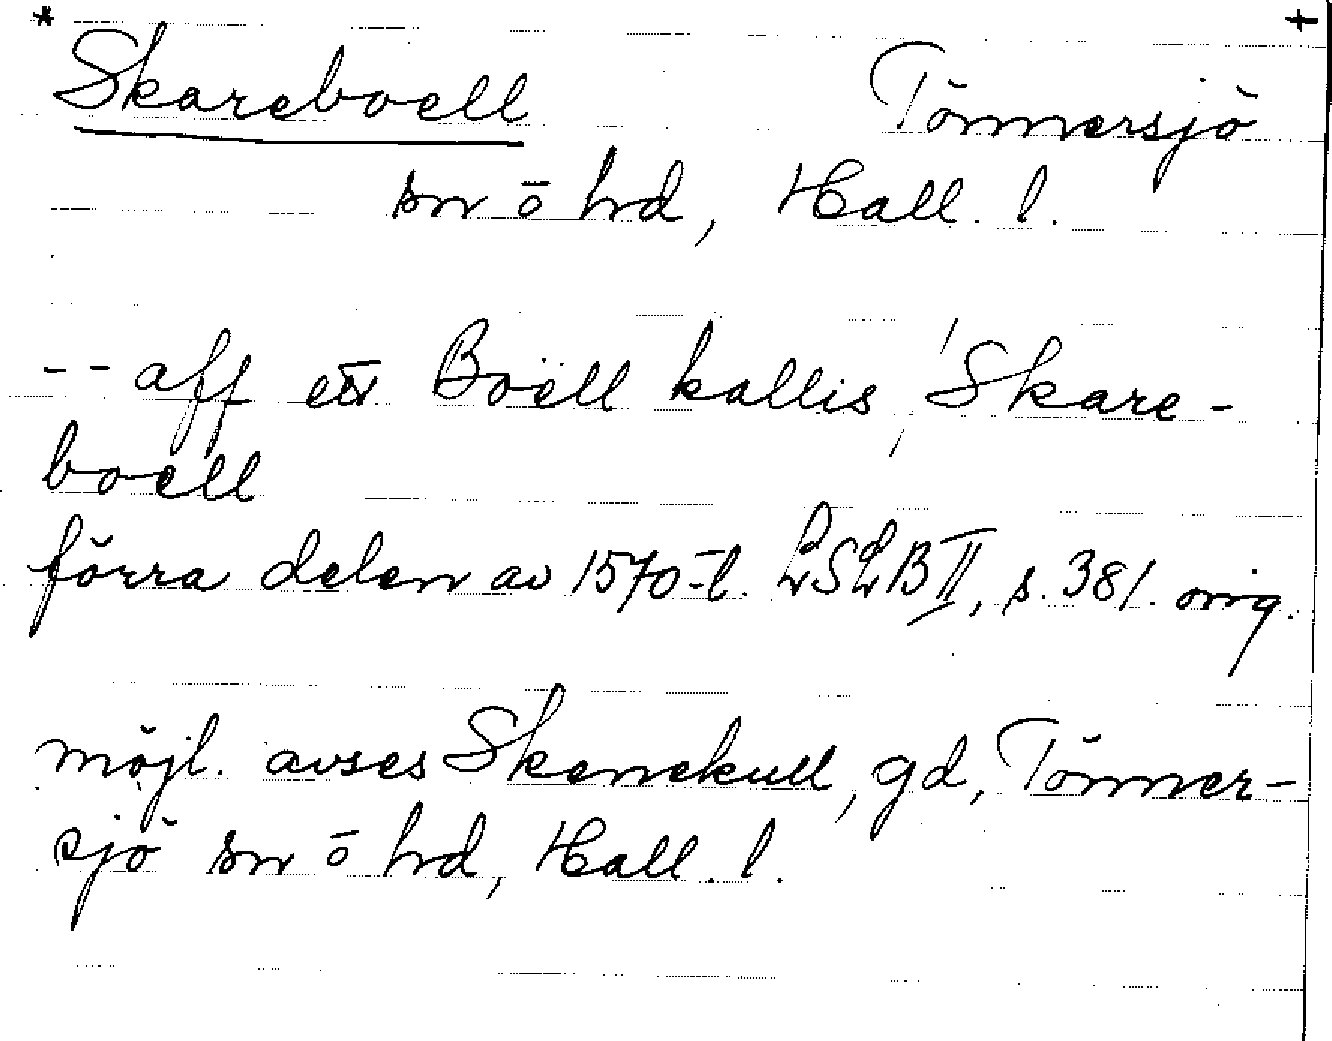 * †
Skareboell Tönnersjö
sn o hd, Hall. l.
-- aff ett Boëll kallis, Skare-
boell
förra delen av 1570-t. LSLB II, s. 381. orig.
möjl. avses Skenekull, gd, Tönner-
sjö sn o hd, Hall. l.